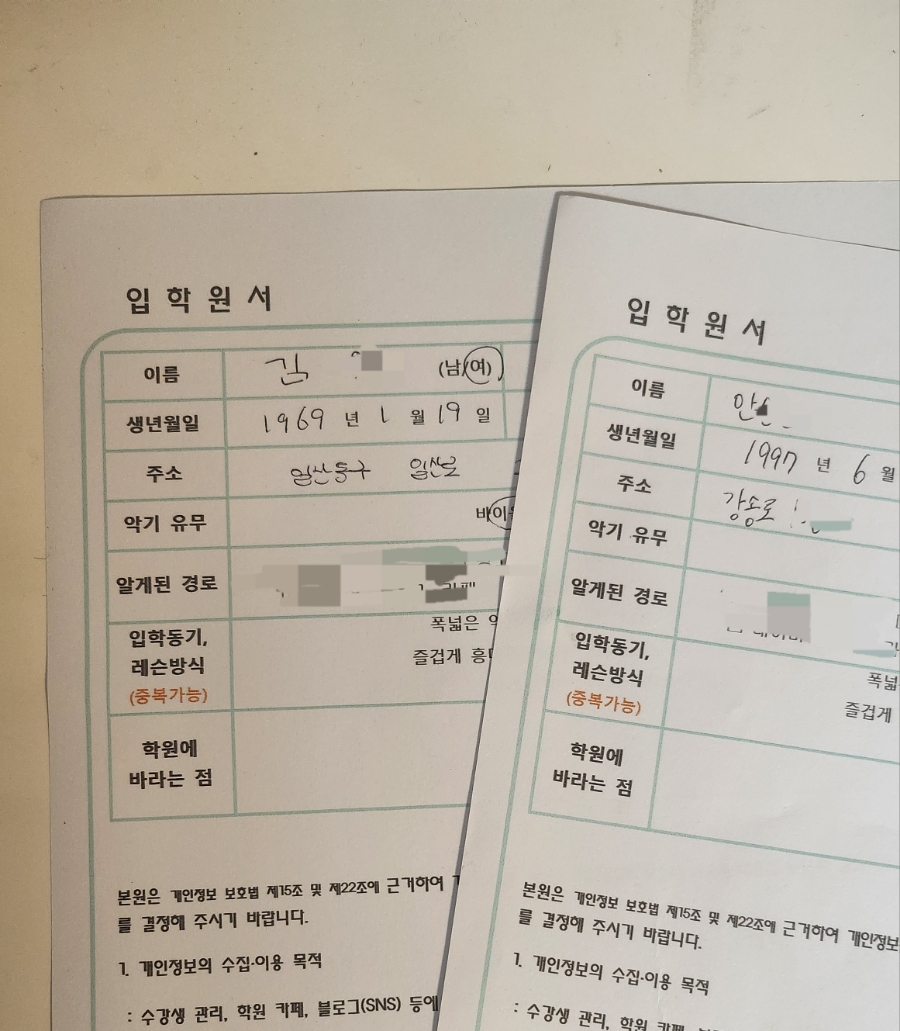 입학원서
이름 김 (남/여)
생년월일 1969 년 1 월 19 일
주소 일산동구 일산로
악기 유무
알게된 경로
폭넓은
입학동기, 즐겁게
레슨방식
(중복가능)
학원에
바라는 점
본원은 개인정보 보호법 제15조 및 제22조에 근거하여
를 결정해 주시기 바랍니다.
1. 개인정보의 수집·이용 목적
: 수강생 관리, 학원 카페, 블로그(SNS) 등에
입학원서
이름 안
생년월일 1997 년 6 월
주소 강송로
악기 유무
알게된 경로
입학동기, 폭넓
레슨방식 즐겁게
(중복가능)
학원에
바라는 점
본원은 개인정보 보호법 제15조 및 제22조에 근거하여 개인정보
를 결정해 주시기 바랍니다.
1. 개인정보의 수집·이용 목적
: 수강생 관리, 학원 카페,